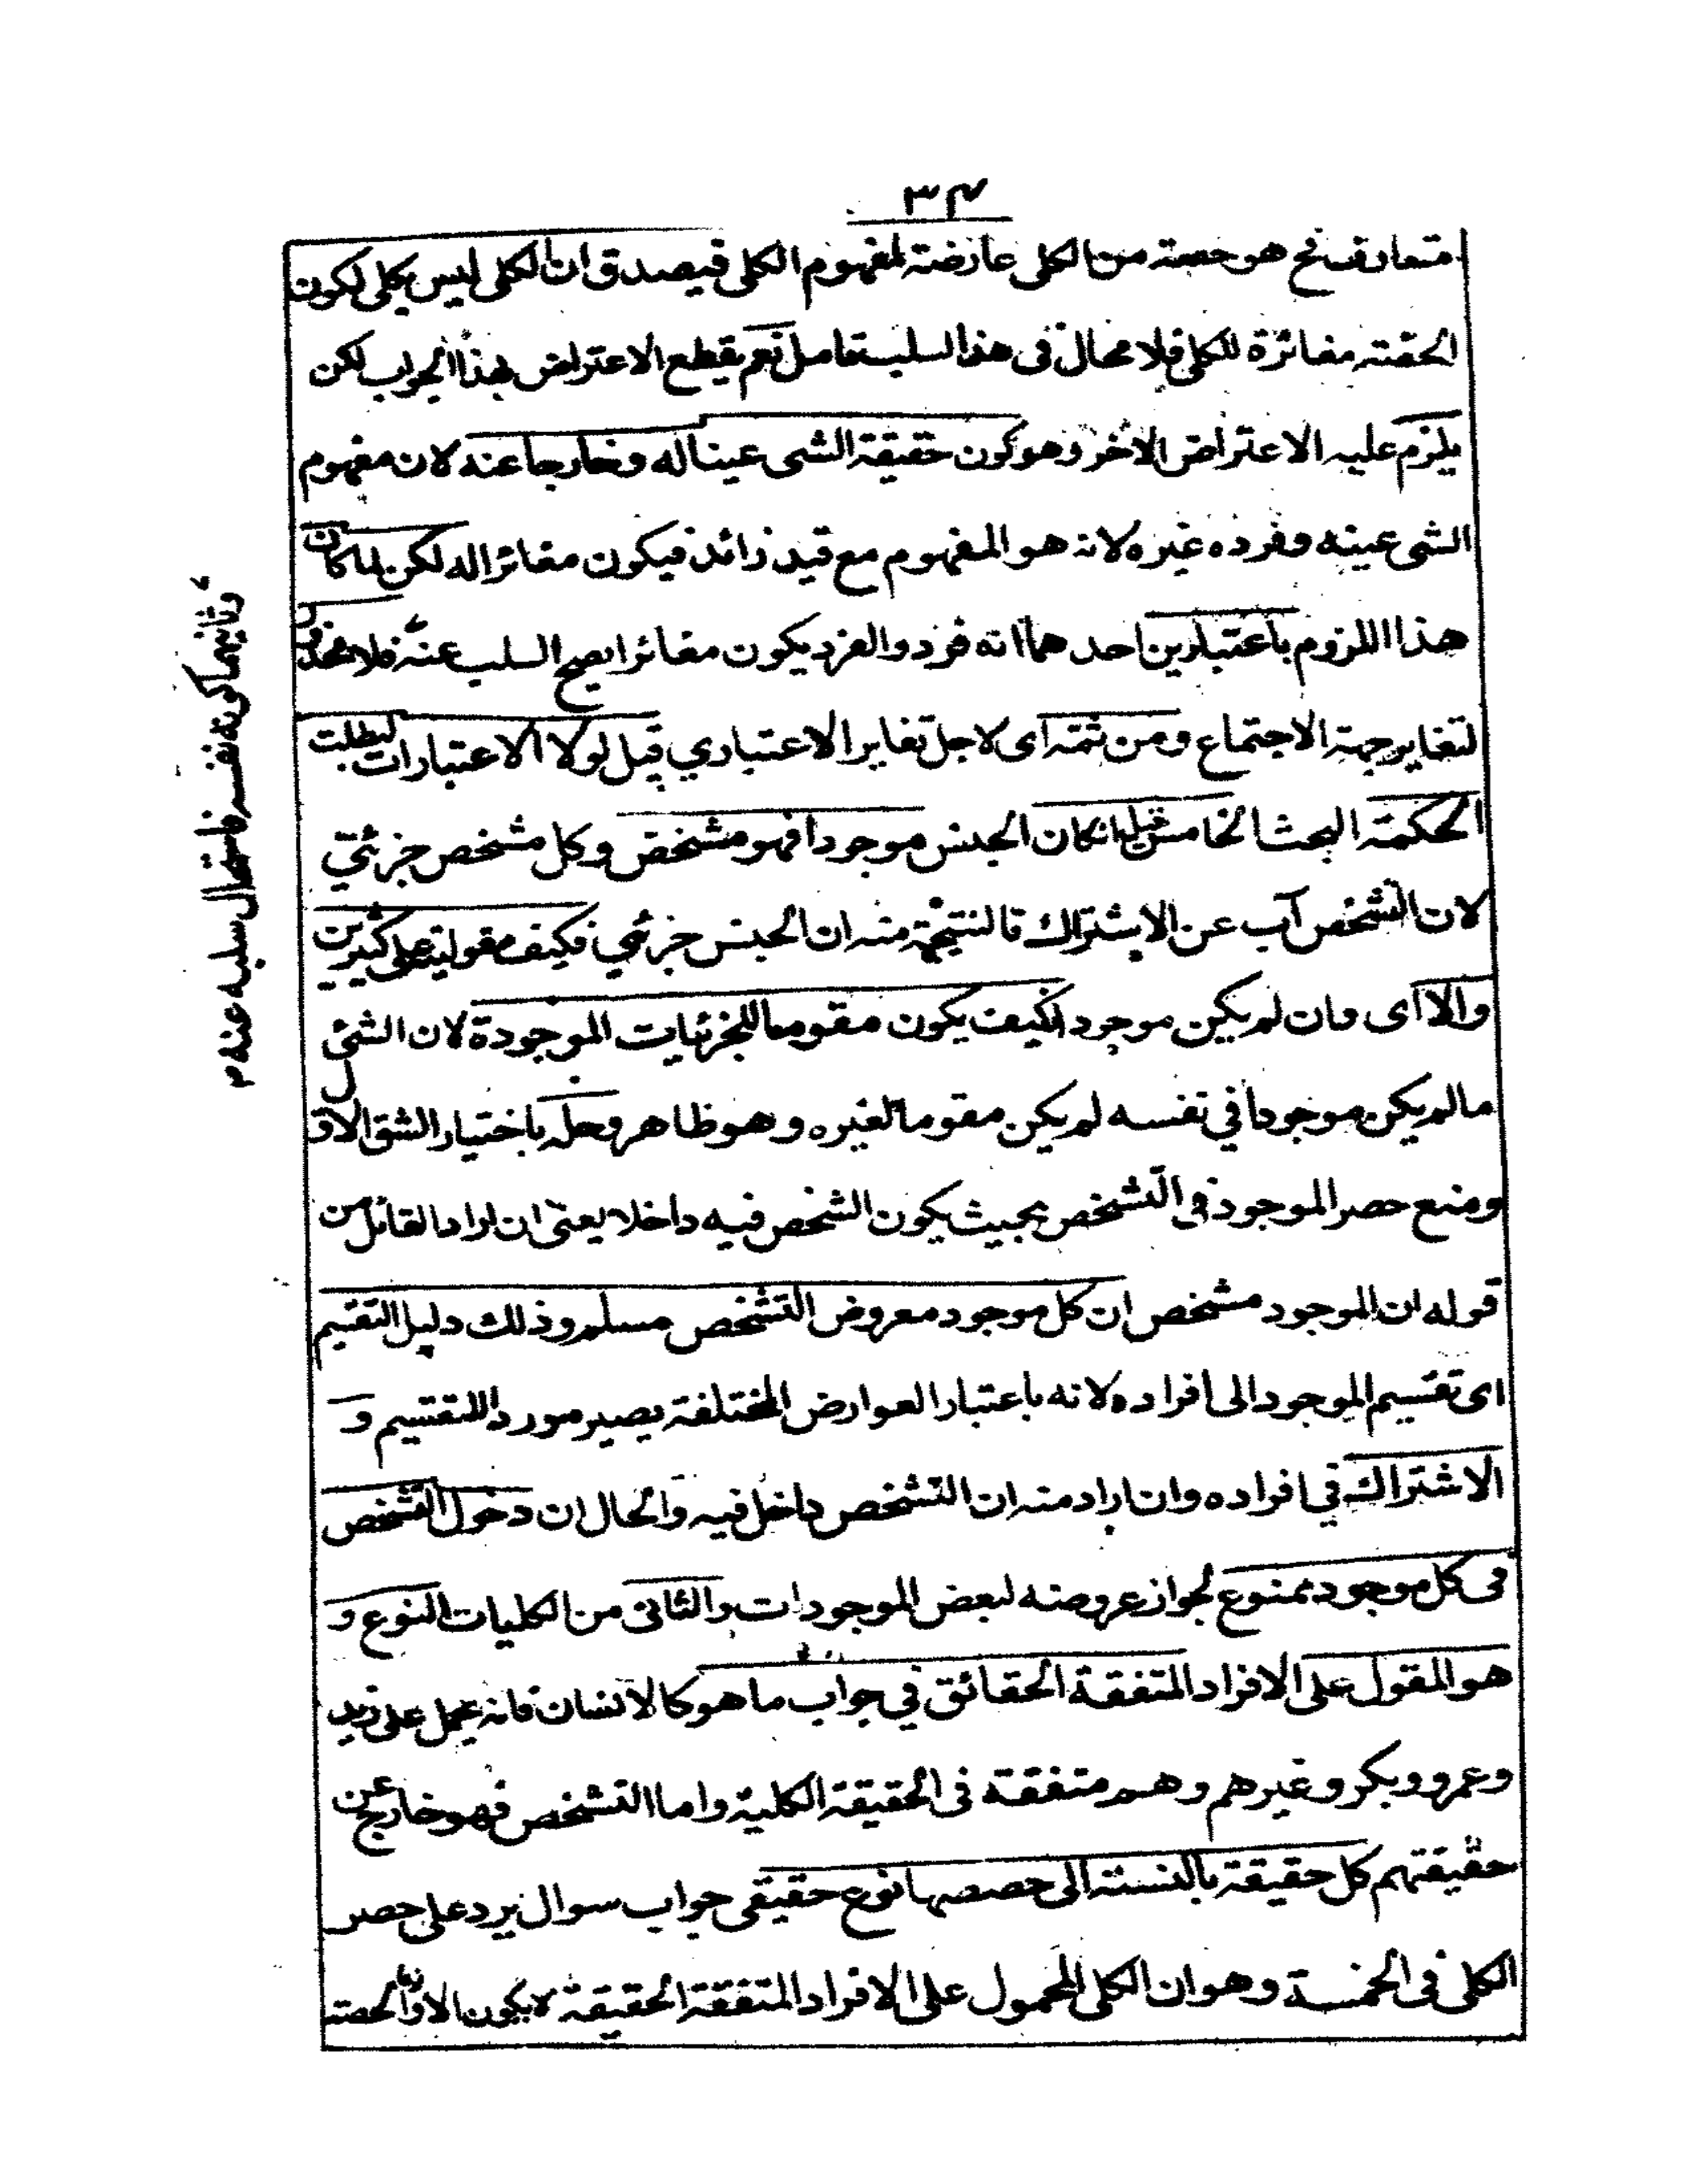 ٣٤
متعارف فح هو حصة من الكلى عارضة لمفهوم الكلى فيصدق ان الكلى ليس بكلى لكون
الحصة مغائرة للكلى فلا محال فى هذا السلب تامل نعم يقطع الاعتراض بهذا الجواب لكن
يلزم عليه الاعتراض الاخر وهو كون حقيقة الشى عينا له وخارجا عنه لان مفهوم
الشى عينه وفرده غيره لانه هو المفهوم مع قيد زائد فيكون مغائرا له لكن لما كان
هذا اللزوم باعتبارين احدهما انه فرد والفرد يكون مغائرا يصح السلب عنه فلا محذور
لتغاير جهة الاجتماع ومن ثمه اى لاجل تغاير الاعتبارى قيل لولا الاعتبارات لبطلت
الحكمة البحث الخامس قيل ان كان الجنس موجودا فهو مشخص وكل مشخص جزئي
لان التشخص آب عن الاشتراك فالنتيجة منه ان الجنس جزئي فكيف مقوليته على كثيرين
والا اى وان لم يكن موجودا فكيف يكون مقوما للجزئيات الموجودة لان الشئى
ما لم يكن موجودا في نفسه لم يكن مقوما لغيره وهو ظاهر وحله باختيار الشق الاول
ومنع حصر الموجود فى التشخص بحيث يكون الشخص فيه داخلا يعنى ان اراد القائل من
قوله ان الموجود مشخص ان كل موجود معروض التشخص مسلم وذلك دليل التقسيم
اى تقسيم الموجود الى افراده لانه باعتبار العوارض المختلفة يصير موردا للتقسيم و
الاشتراك في افراده وان اراد منه ان التشخص داخل فيه والحال ان دخول التشخص
فى كل موجود ممنوع لجواز عروضه لبعض الموجودات والثانى من الكليات النوع و
هو المقول على الافراد المتفقة الحقائق في جواب ما هو كالانسان فانه يحمل على زيد
وعمرو وبكر وغيرهم وهم متفقة فى الحقيقة الكلية واما التشخص فهو خارج عن
حقيقتهم كل حقيقة بالنسبة الى حصصها نوع حقيقى جواب سوال يرد على حصر
الكلى فى الخمسة وهو ان الكلى المحمول على الافراد المتفقة الحقيقة لا يكون الا نوعا والحصة
وثانيهما كونه نفسه فاستحال سلبه عنه